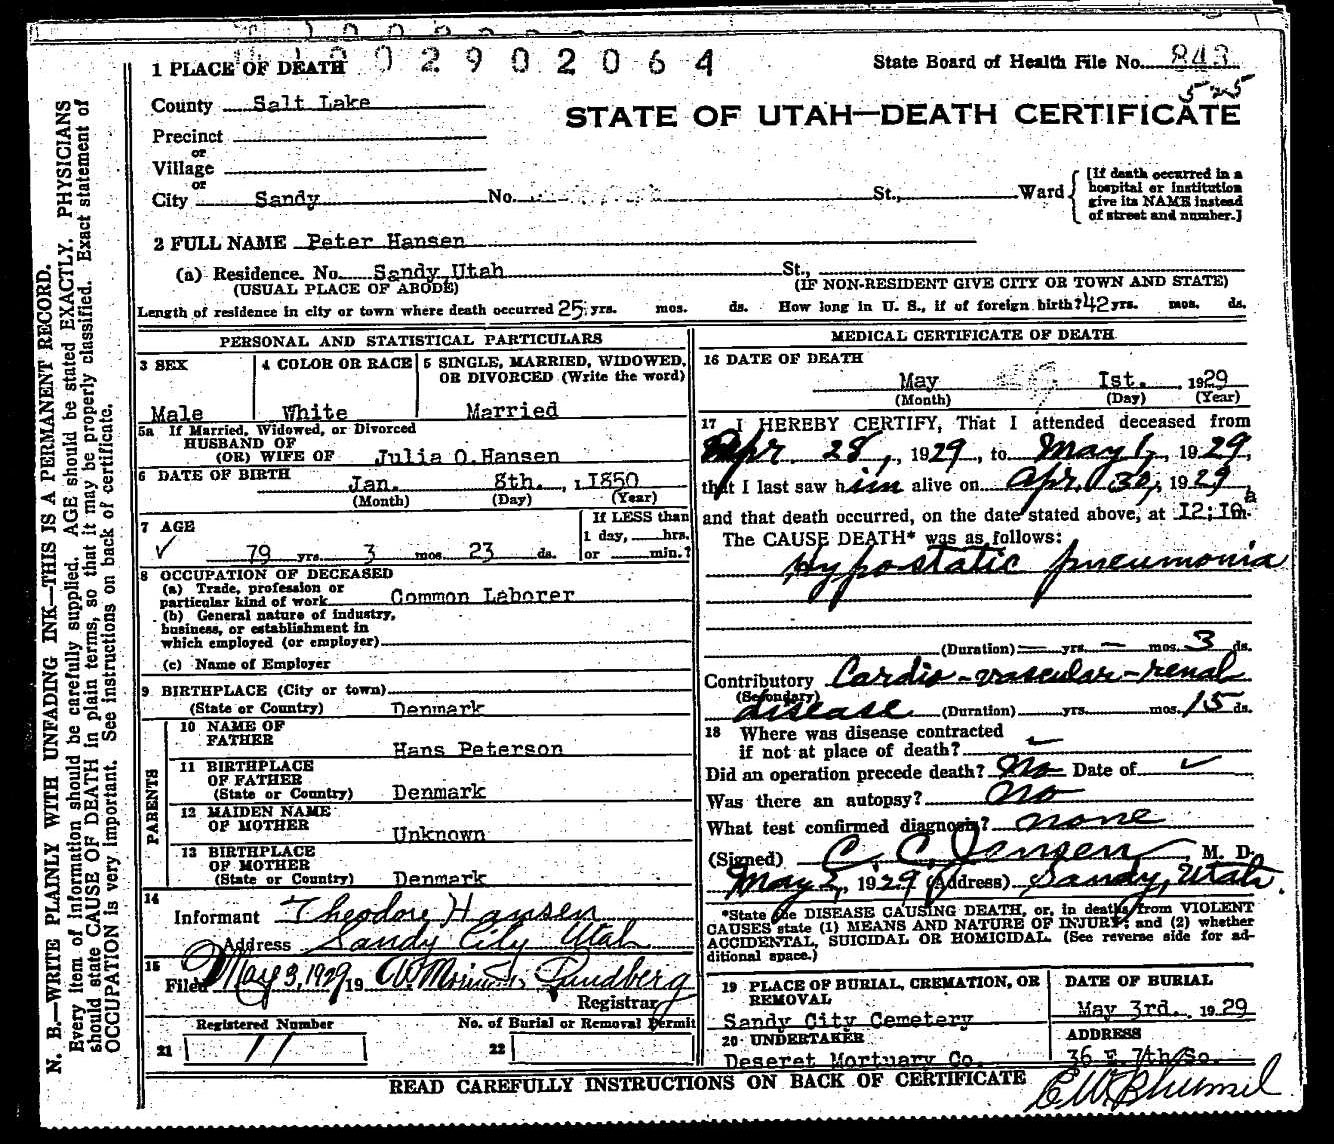 002902064
1 PLACE OF DEATH
State Board of Health File No. 843
525
County Salt Lake
STATE OF UTAH—DEATH CERTIFICATE
Precinct
or
Village
or
City Sandy No. St., Ward
[If death occurred in a
hospital or institution
give its NAME instead
of street and number.]
2 FULL NAME Peter Hansen
(a) Residence. No. Sandy, Utah St.,
(USUAL PLACE OF ABODE) (IF NON-RESIDENT GIVE CITY OR TOWN AND STATE)
Length of residence in city or town where death occurred 25 yrs. mos. ds. How long in U. S., if of foreign birth? 42 yrs. mos. ds.
PERSONAL AND STATISTICAL PARTICULARS
3 SEX
Male
4 COLOR OR RACE
White
5 SINGLE, MARRIED, WIDOWED,
OR DIVORCED (Write the word)
Married
5a If Married, Widowed, or Divorced
HUSBAND OF
(OR) WIFE OF Julia O. Hansen
6 DATE OF BIRTH Jan. 8th. , 1 1850
(Month) (Day) (Year)
7 AGE
79 yrs. 3 mos. 23 ds.
If LESS than
1 day, hrs.
or min.?
8 OCCUPATION OF DECEASED
(a) Trade, profession or
particular kind of work Common Laborer
(b) General nature of industry,
business, or establishment in
which employed (or employer)
(c) Name of Employer
9 BIRTHPLACE (City or town)
(State or Country) Denmark
PARENTS
10 NAME OF
FATHER Hans Peterson
11 BIRTHPLACE
OF FATHER
(State or Country) Denmark
12 MAIDEN NAME
OF MOTHER Unknown
13 BIRTHPLACE
OF MOTHER
(State or Country) Denmark
14
Informant Theodore Hansen
Address Sandy City Utah
15
Filed May 3, 1929 19
Registrar
Registered Number
21 11
No. of Burial or Removal Permit
22
MEDICAL CERTIFICATE OF DEATH
16 DATE OF DEATH
May Ist. , 1929
(Month) (Day) (Year)
17 I HEREBY CERTIFY, That I attended deceased from
Apr 28, , 1929, to May 1, 1929,
that I last saw him alive on Apr. 30, 1929
and that death occurred, on the date stated above, at I2;I0 a m.
The CAUSE DEATH* was as follows:
Hypostatic pneumonia
(Duration) — yrs. — mos. 3 ds.
Contributory Cardio-vascular-renal
(Secondary)
disease (Duration) yrs. mos. 15 ds.
18 Where was disease contracted
if not at place of death?
Did an operation precede death? No Date of
Was there an autopsy? No
What test confirmed diagnosis? none
(Signed) C. C. Jensen, M. D.
May 2, 1929 (Address) Sandy, Utah.
*State the DISEASE CAUSING DEATH, or, in deaths from VIOLENT
CAUSES state (1) MEANS AND NATURE OF INJURY; and (2) whether
ACCIDENTAL, SUICIDAL OR HOMICIDAL. (See reverse side for ad-
ditional space.)
19 PLACE OF BURIAL, CREMATION, OR
REMOVAL
Sandy City Cemetery
DATE OF BURIAL
May 3rd. 1929
20 UNDERTAKER
Deseret Mortuary Co.
ADDRESS
36 E. 7th So.
READ CAREFULLY INSTRUCTIONS ON BACK OF CERTIFICATE
N. B.—WRITE PLAINLY WITH UNFADING INK—THIS IS A PERMANENT RECORD.
Every item of information should be carefully supplied. AGE should be stated EXACTLY. PHYSICIANS
should state CAUSE OF DEATH in plain terms, so that it may be properly classified. Exact statement of
OCCUPATION is very important. See instructions on back of certificate.